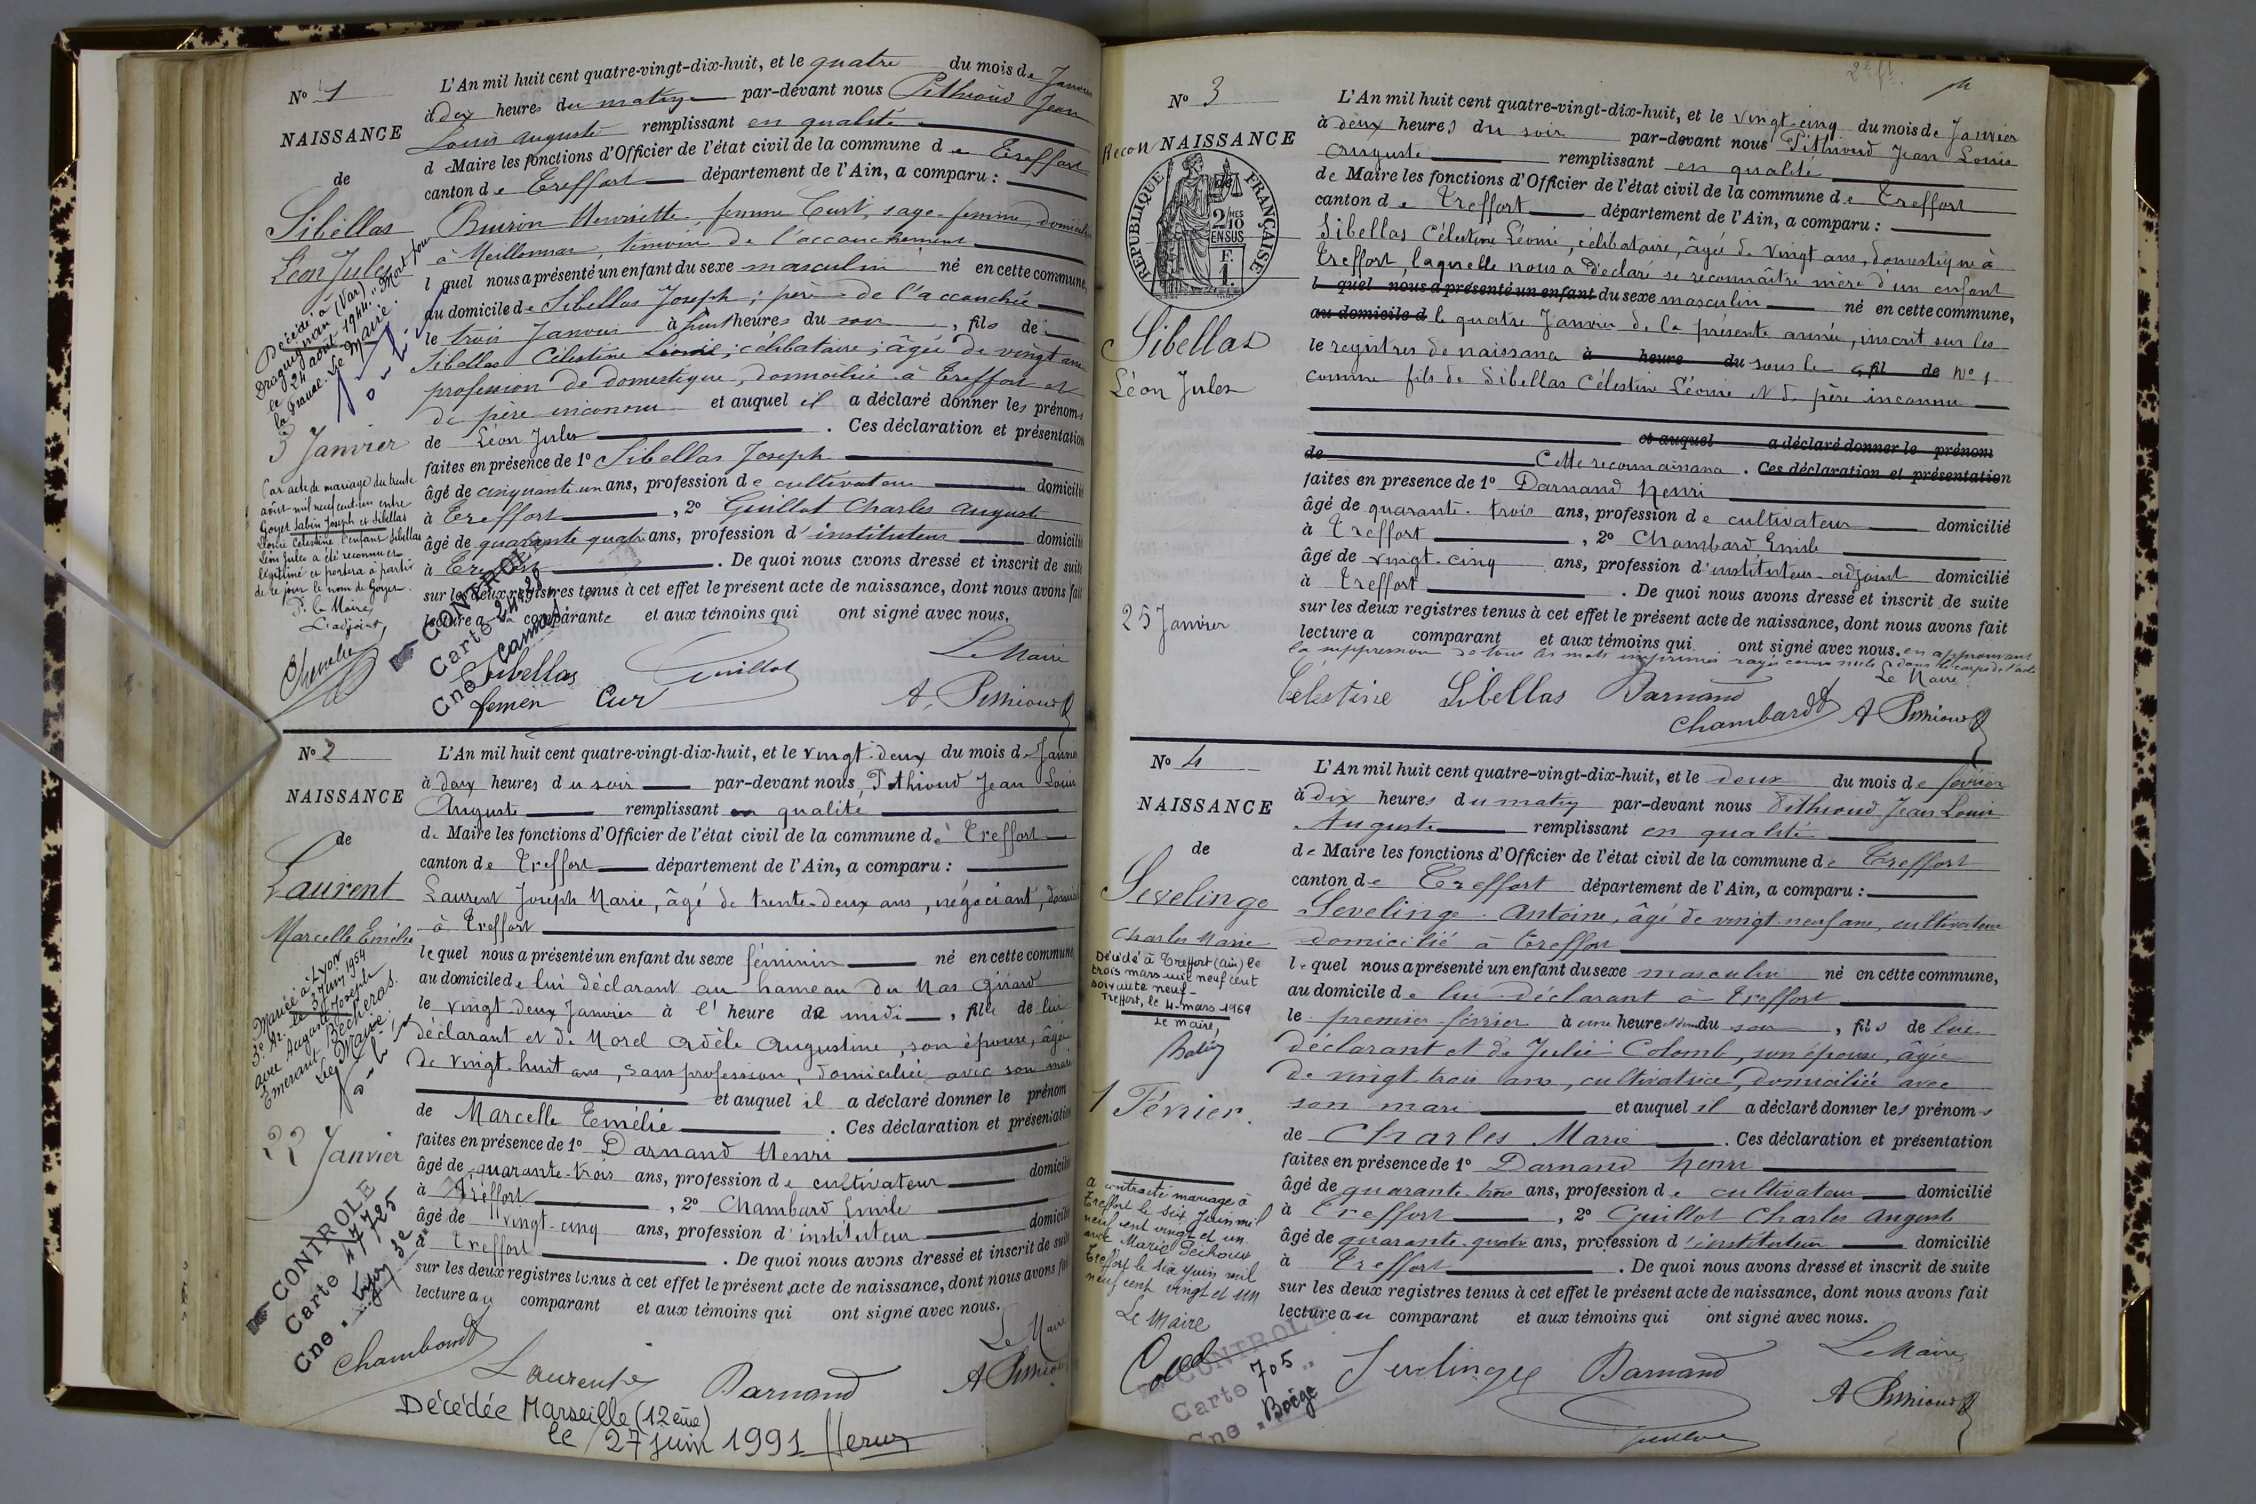 N° 1
NAISSANCE
de
Sibellas
Léon Jules
Décédé à
Draguignan (Var)
le 24 août 1944. "Mort pour
la France. Le Maire.
3 Janvier
Par acte de mariage du trente
août mil neuf cent un entre
Goyet Sabin Joseph et Sibellas
Léonie Célestine l'enfant Sibellas
Léon Jules a été reconnu et
légitimé et portera à partir
de ce jour le nom de Goyet.
Pr le Maire
L'adjoint,
L'An mil huit cent quatre-vingt-dix-huit, et le quatre du mois de Janvier
à dix heures du matin par-dévant nous Pithioud Jean
Louis Auguste remplissant en qualité
de Maire les fonctions d'Officier de l'état civil de la commune de Treffort
canton de Treffort département de l'Ain, a comparu :
Buirin Henriette femme Curt, sage-femme, domiciliée
à Meillonnas, témoin de l'accouchement
lequel nous a présenté un enfant du sexe masculin né en cette commune,
au domicile de Sibellas Joseph ; père de l'accouchée
le trois Janvier à huit heures du soir, fils de
Sibellas Célestine Léonie ; célibataire ; âgée de vingt ans
profession de domestique, domiciliée à Treffort et
de père inconnu et auquel il a déclaré donner les prénoms
de Léon Jules . Ces déclaration et présentation
faites en présence de 1° Sibellas Joseph
âgé de cinquante un ans, profession de cultivateur domicilié
à Treffort , 2° Guillot Charles Auguste
âgé de quarante quatre ans, profession d'instituteur domicilié
à Treffort . De quoi nous avons dressé et inscrit de suite
sur les deux registres tenus à cet effet le présent acte de naissance, dont nous avons fait
lecture a la comparante et aux témoins qui ont signé avec nous.
CONTROLE
Carte
Cne Cannes
Sibellas Guillot Le Maire
femen Cur A. Pithioud
N° 2
NAISSANCE
de
Laurent
Marcelle Emélie
Mariée à Lyon
3e Ar. le 3 Juin 1954
avec Auguste Joseph
Emerant Bécheras.
Le Maire.
22 Janvier
CONTROLE
Carte 17725
Cne. Lyon 3e
L'An mil huit cent quatre-vingt-dix-huit, et le vingt-deux du mois de Janvier
à deux heures du soir par-devant nous, Pithioud Jean Louis
Auguste remplissant en qualité
de Maire les fonctions d'Officier de l'état civil de la commune de Treffort
canton de Treffort département de l'Ain, a comparu :
Laurent Joseph Marie, âgé de trente-deux ans, négociant, domicilié
à Treffort
lequel nous a présenté un enfant du sexe féminin né en cette commune
au domicile de lui déclarant au hameau du Mas Girard
le vingt-deux Janvier à l'heure de midi , fille de lui
déclarant et de Morel Adèle Augustine, son épouse, âgée
de vingt-huit ans, sans profession, domiciliée avec son mari
et auquel il a déclaré donner le prénom
de Marcelle Emélie . Ces déclaration et présentation
faites en présence de 1° Darnand Henri
âgé de quarante-trois ans, profession de cultivateur domicilié
à Treffort , 2° Chambard Emile
âgé de vingt-cinq ans, profession d'instituteur domicilié
à Treffort . De quoi nous avons dressé et inscrit de suite
sur les deux registres tenus à cet effet le présent acte de naissance, dont nous avons fait
lecture au comparant et aux témoins qui ont signé avec nous.
Chambard Laurent Darnand Le Maire
A Pithioud
Décédée Marseille (12ème)
le 27 juin 1991
N° 3
Recon NAISSANCE
de
RÉPUBLIQUE FRANÇAISE
2/10 MES
EN SUS
F.
1.
Sibellas
Léon Jules
25 Janvier
L'An mil huit cent quatre-vingt-dix-huit, et le vingt-cinq du mois de Janvier
à deux heures du soir par-devant nous Pithioud Jean Louis
Auguste remplissant en qualité
de Maire les fonctions d'Officier de l'état civil de la commune de Treffort
canton de Treffort département de l'Ain, a comparu :
Sibellas Célestine Léonie, célibataire, âgée de vingt ans, domestique à
Treffort, laquelle nous a déclaré se reconnaître mère d'un enfant
lequel nous a présenté un enfant du sexe masculin né en cette commune,
au domicile d le quatre Janvier de la présente année, inscrit sur les
le registres de naissance à heure du sous le , fil de N° 1
comme fils de Sibellas Célestine Léonie et de père inconnu
et auquel a déclaré donner le prénom
de Cette reconnaissance . Ces déclaration et présentation
faites en présence de 1° Darnand Henri
âgé de quarante-trois ans, profession de cultivateur domicilié
à Treffort , 2° Chambard Emile
âgé de vingt-cinq ans, profession d'instituteur-adjoint domicilié
à Treffort . De quoi nous avons dressé et inscrit de suite
sur les deux registres tenus à cet effet le présent acte de naissance, dont nous avons fait
lecture a comparant et aux témoins qui ont signé avec nous. en approuvant
la suppression de tous les mots imprimés rayés comme nuls dans le corps de l'acte
Le Maire
Célestine Sibellas Darnand
Chambard A Pithioud
N° 4
NAISSANCE
de
Sevelinge
Charles Marie
Décédé à Treffort (Ain) le
trois mars mil neuf cent
soixante neuf-
Treffort, le 4-mars 1969
Le Maire,
1 Février.
a contracté mariage à
Treffort le six Juin mil
neuf cent vingt et un
avec Marie Péchoux
Treffort le six juin mil
neuf cent vingt et un
Le Maire
CONTROLE
Carte 705
Cne. Boëge
L'An mil huit cent quatre-vingt-dix-huit, et le deux du mois de février
à dix heures du matin par-devant nous Pithioud Jean Louis
Auguste remplissant en qualité
de Maire les fonctions d'Officier de l'état civil de la commune de Treffort
canton de Treffort département de l'Ain, a comparu :
Sevelinge Antoine, âgé de vingt-neuf ans, cultivateur
domicilié à Treffort
lequel nous a présenté un enfant du sexe masculin né en cette commune,
au domicile de lui déclarant à Treffort
le premier février à une heure du soir , fils de lui
déclarant et de Julie Colomb, son épouse, âgée
de vingt-trois ans, cultivatrice, domiciliée avec
son mari et auquel il a déclaré donner les prénoms
de Charles Marie . Ces déclaration et présentation
faites en présence de 1° Darnand Henri
âgé de quarante-trois ans, profession de cultivateur domicilié
à Treffort , 2° Guillot Charles Auguste
âgé de quarante-quatre ans, profession d'instituteur domicilié
à Treffort . De quoi nous avons dressé et inscrit de suite
sur les deux registres tenus à cet effet le présent acte de naissance, dont nous avons fait
lecture au comparant et aux témoins qui ont signé avec nous.
Sevelinge Darnand Le Maire
A Pithioud
Guillot